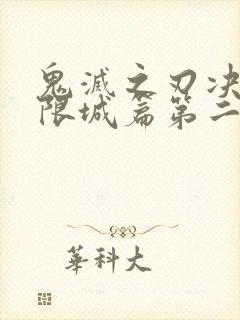 鬼滅之刃决
限城篇第二
華科大